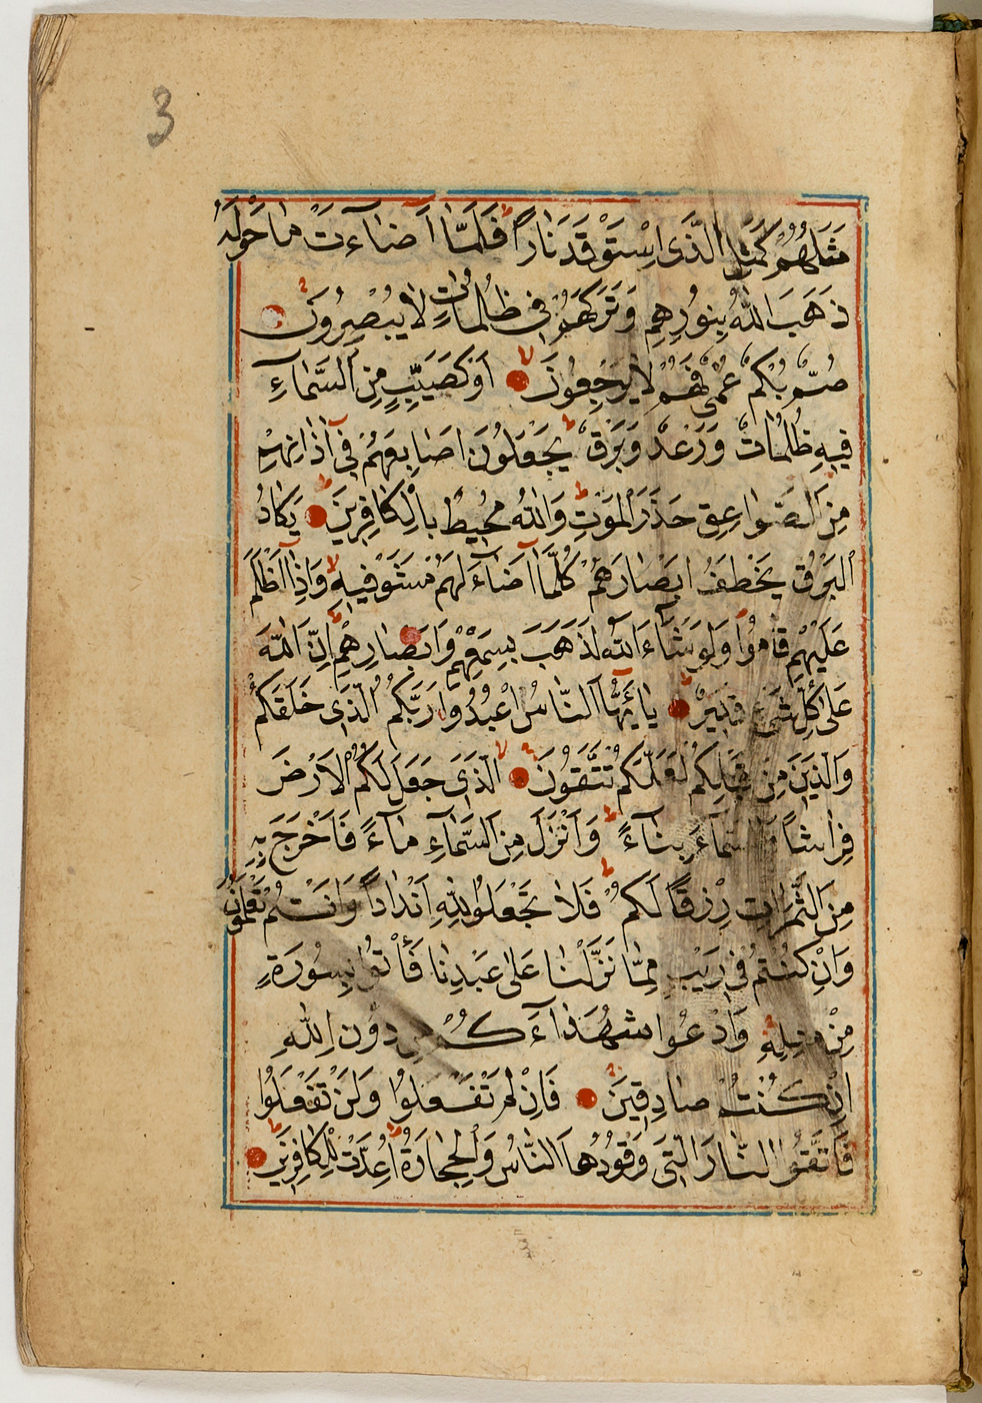 3
مَثَلُهُمْ كَمَثَلِ الَّذَى اسْتَوْقَدَ نَاراً فَلَمَّا اَضَاءَتْ مَا حَوْلَهُ
ذَهَبَ اللّٰهُ بِنُورِهِمْ وَتَرَكَهُمْ فِى ظُلُمَاتٍ لَا يُبْصِرُونَ
صُمٌّ بُكْمٌ عُمْىٌ فَهُمْ لَا يَرْجِعُونَ اَوْ كَصَيِّبٍ مِنَ السَّمَآءِ
فِيهِ ظُلُمَاتٌ وَرَعْدٌ وَبَرْقٌ يَجْعَلُونَ اَصَابِعَهُمْ فِى اٰذَانِهِمْ
مِنَ الصَّوَاعِقِ حَذَرَ الْمَوْتِ وَاللّٰهُ مُحِيطٌ بِالْكَافِرِينَ يَكَادُ
الْبَرْقُ يَخْطَفُ اَبْصَارَهُمْ كُلَّمَا اَضَاءَ لَهُمْ مَشَوْا فِيهِ وَاِذَا اَظْلَمَ
عَلَيْهِمْ قَامُوا وَلَوْ شَاءَ اللّٰهُ لَذَهَبَ بِسَمْعِهِمْ وَاَبْصَارِهِمْ اِنَّ اللّٰهَ
عَلَى كُلِّ شَىْءٍ قَدِيرٌ يَا اَيُّهَا النَّاسُ اعْبُدُوا رَبَّكُمُ الَّذَى خَلَقَكُمْ
وَالَّذِينَ مِنْ قَبْلِكُمْ لَعَلَّكُمْ تَتَّقُونَ الَّذَى جَعَلَ لَكُمُ الْاَرْضَ
فِرَاشاً وَالسَّمَآءَ بِنَآءً وَاَنْزَلَ مِنَ السَّمَآءِ مَآءً فَاَخْرَجَ بِهِ
مِنَ الثَّمَرَاتِ رِزْقاً لَكُمْ فَلَا تَجْعَلُوا لِلّٰهِ اَنْدَاداً وَاَنْتُمْ تَعْلَمُونَ
وَاِنْ كُنْتُمْ فِى رَيْبٍ مِمَّا نَزَّلْنَا عَلَى عَبْدِنَا فَأْتُوا بِسُورَةٍ
مِنْ مِثْلِهِ وَادْعُوا شُهَدَآءَكُمْ مِنْ دُونِ اللّٰهِ
اِنْ كُنْتُمْ صَادِقِينَ فَاِنْ لَمْ تَفْعَلُوا وَلَنْ تَفْعَلُوا
فَاتَّقُوا النَّارَ الَّتِى وَقُودُهَا النَّاسُ وَالْحِجَارَةُ اُعِدَّتْ لِلْكَافِرِينَ